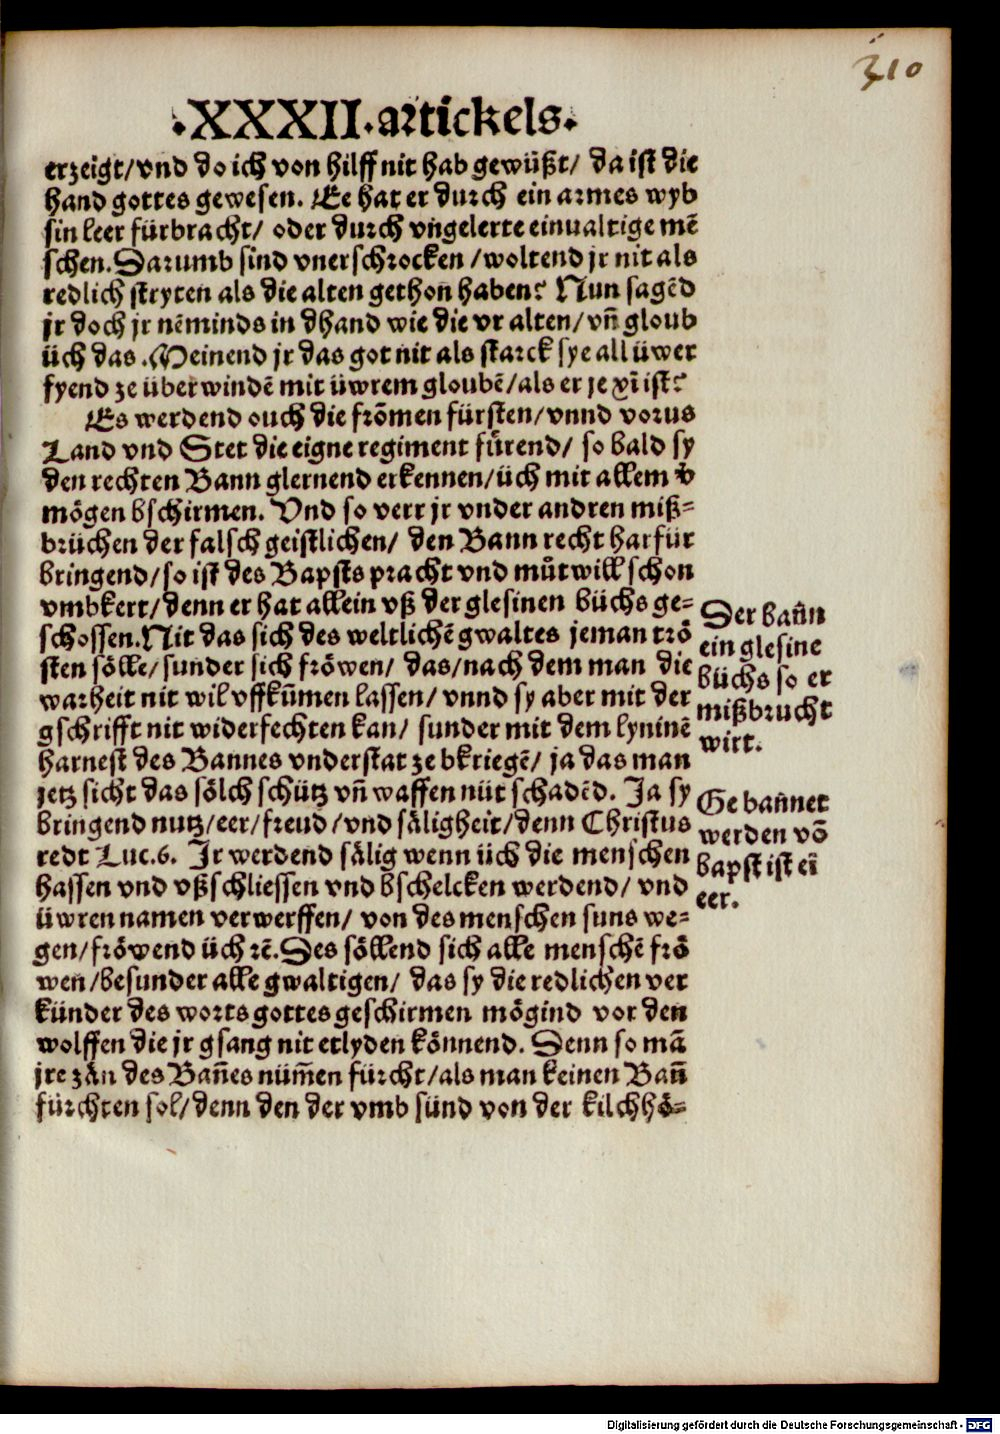 310
·XXXII·artickels·
erzeigt/vnd do ich von hilff nit hab gewüßt/ da ist die
hand gottes gewesen. Ee hat er durch ein armes wyb
sin leer fürbracht/ oder durch vngelerte einualtige mē
schen. Darumb sind vnerschrocken/woltend jr nit als
redlich stryten als die alten gethon haben? Nun sagēd
jr doch jr nēminds in dhand wie die vr alten/vn̄ gloub
üch das. Meinend jr das got nit als starck sye all üwer
fyend ze überwindē mit üwrem gloubē/als er je xī ist?
Es werdend ouch die frōmen fürsten/vnnd vorus
Land vnd Stet die eigne regiment fürend/ so bald sy
den rechten Bann glernend erkennen/üch mit allem v̄
mögen bschirmen. Vnd so verr jr vnder andren miß⸗
brüchen der falsch geistlichen/ den Bann recht harfür
bringend/so ist des Bapsts pracht vnd můtwill schon
vmbkert/denn er hat allein vß der glesinen büchs ge⸗
schossen. Nit das sich des weltlichē gwaltes jeman trö
sten sölle/sunder sich fröwen/ das/nach dem man die
warheit nit wil vffkūmen lassen/ vnnd sy aber mit der
gschrifft nit widerfechten kan/ sunder mit dem lyninē
harnest des Bannes vnderstat ze bkriegē/ ja das man
jetz sicht das sölch schütz vn̄ waffen nüt schadēd. Ja sy
bringend nutz/eer/freud/vnd säligheit/denn Christus
redt Luc.6. Jr werdend sälig wenn üch die menschen
hassen vnd vßschliessen vnd bschelcken werdend/ vnd
üwren namen verwerffen/ von des menschen suns we⸗
gen/fröwend üch rē. Des söllend sich alle menschē frö
wen/besunder alle gwaltigen/ das sy die redlichen ver
künder des worts gottes geschirmen mögind vor den
wolffen die jr gsang nit erlyden könnend. Denn so mā
jre zän des Ban̄es nüm̄en fürcht/als man keinen Ban̄
fürchten sol/denn den der vmb sünd von der kilchhö⸗
Der ban̄n
ein glesine
büchs so er
mißbrucht
wirt.
Gebannet
werden vō
bapst ist eī
eer.
Digitalisierung gefördert durch die Deutsche Forschungsgemeinschaft - DFG